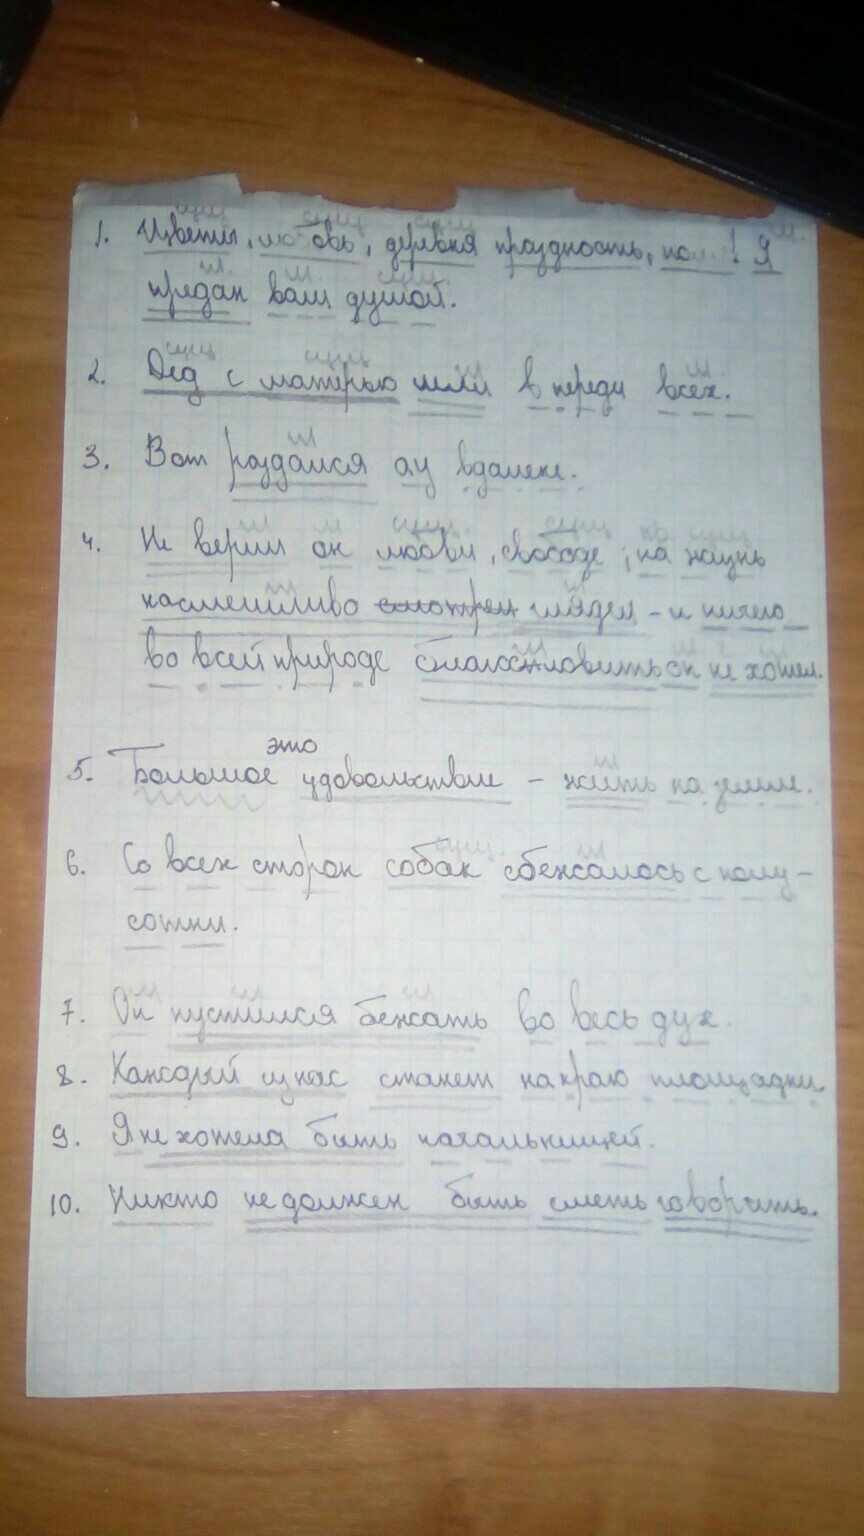 1. Цветы, любовь, деревня праздность, поля! Я
предан вам душой.
2. Дед с матерью шли в переди всех.
3. Вот раздался ау вдалеке.
4. Не верил он любви, свободе, на жизнь
насмешливо смотрел глядел - и ничего
во всей природе благословить он не хотел.
это
5. Большое удовольствие - жить на земле.
6. Со всех сторон собак сбежалось с полу-
сотни.
7. Он пустился бежать во весь дух.
8. Каждый из нас станет на краю площадки.
9. Я не хотела быть начальницей.
10. Никто не должен быть сметь говорить.